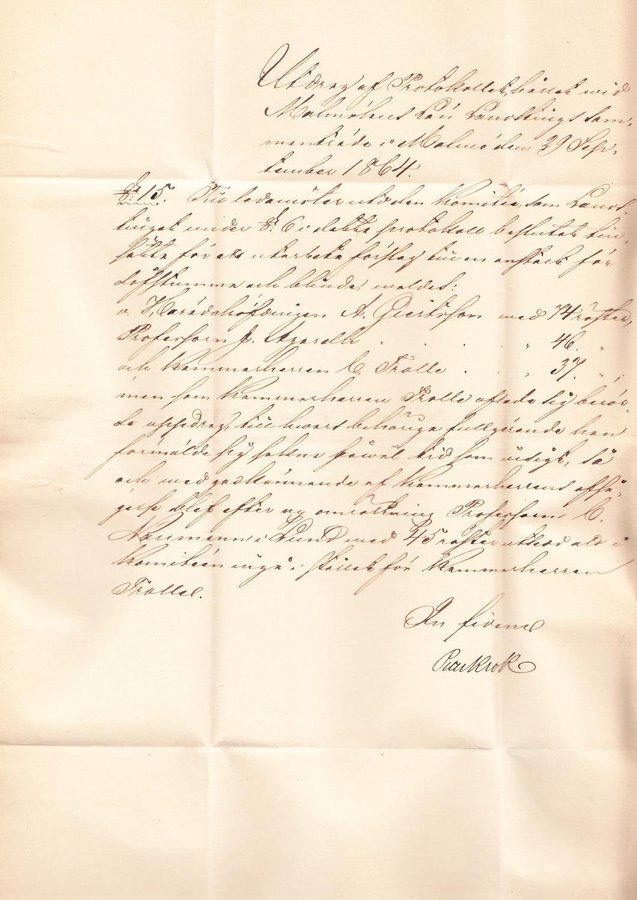 Utdrag af Protokollet, hållet vid
Malmöhus Läns Landstings Sam-
manträde i Malmö den 29 Sep-
tember 1864.
§ 15. Till ledamöter uti den Komitée, som Lands-
tinget under § 6 i detta protokoll beslutat till-
sätta för att utarbeta förslag till en anstalt för
döfstumma och blinda, valdes:
v. Häradshöfdingen A. med 74 röster,
Professorn J. . . . „ 46. „
och Kammarherren C. Trolle . . . „ 37. „
men som Kammarherren Trolle afsade sig berör-
da uppdrag, till hvars behöriga fullgörande han
förmälde sig sakna såväl tid som insigt, så
och med godkännande af Kammarherrens afsä-
gelse blef efter ny omröstning Professorn C.
Naumann i Lund med 45 röster utsedd att i
Komitéen ingå i stället för Kammarherren
Trolle.
In fidem